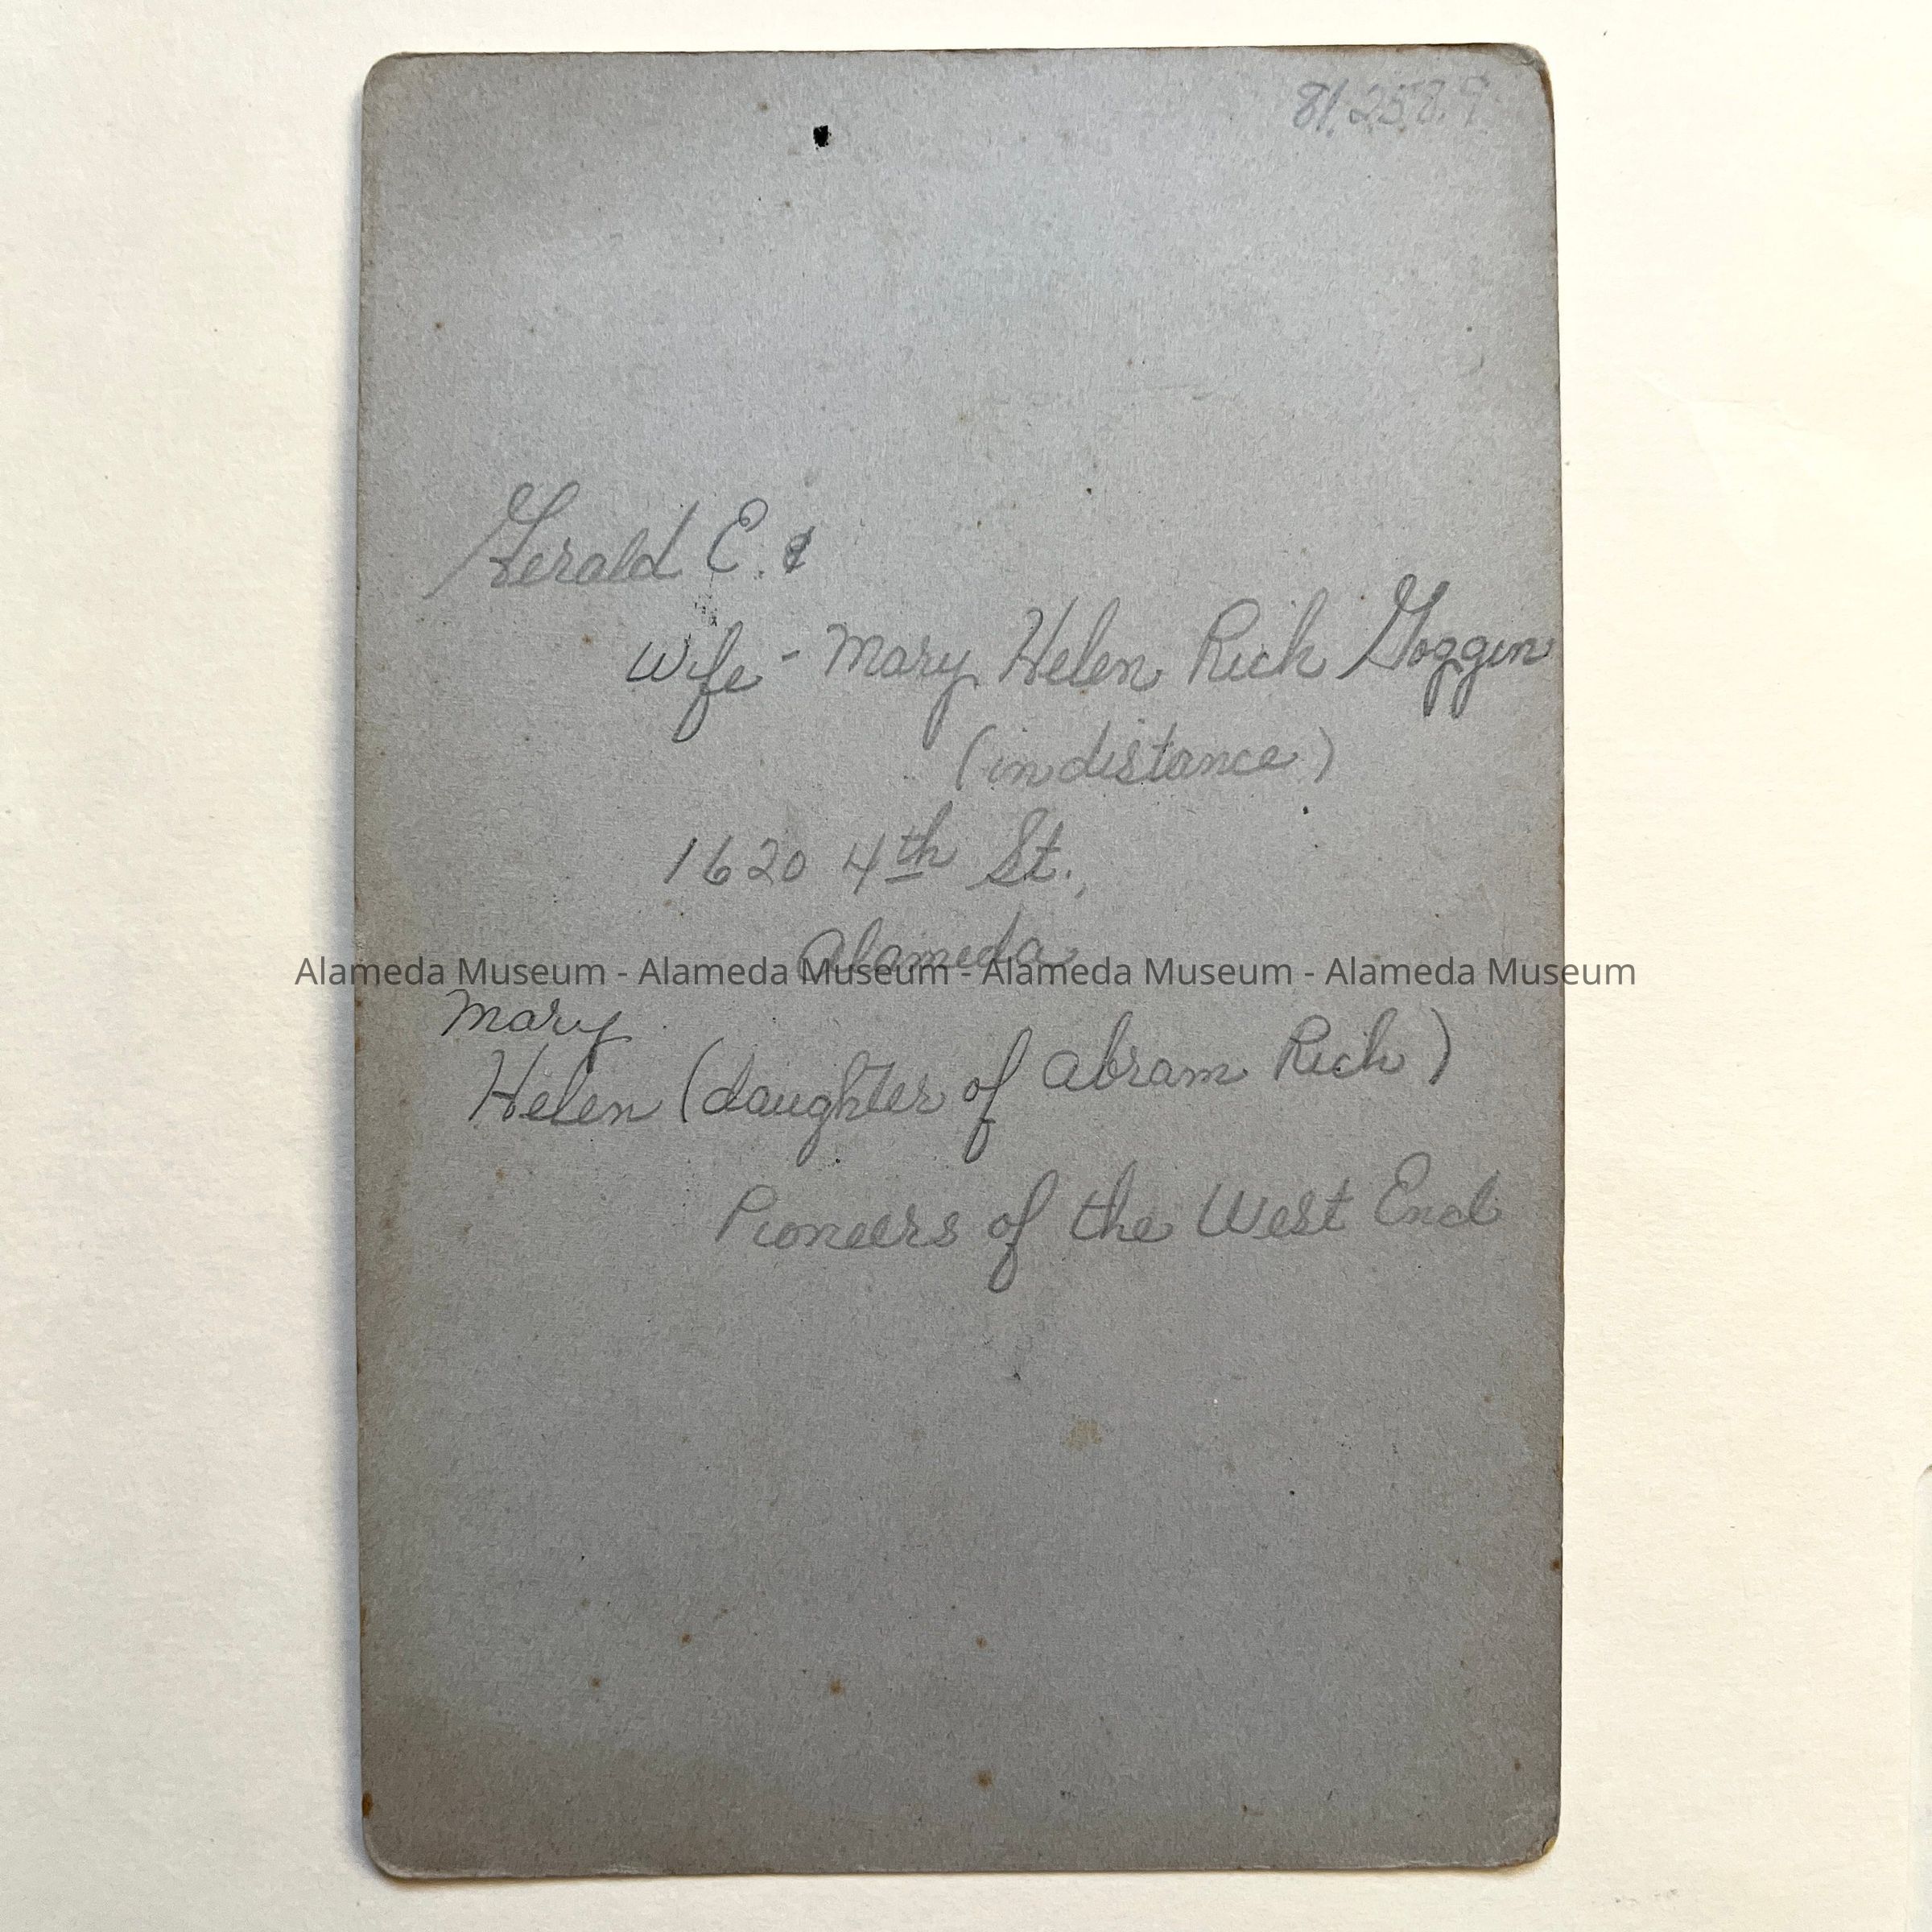 81.258.9
Gerald E. &
Wife - Mary Helen Rich Goggin
(in distance)
1620 4th St.,
Alameda
Alameda Museum - Alameda Museum - Alameda Museum - Alameda Museum
Mary
Helen (daughter of Abram Rich)
Pioneers of the West End